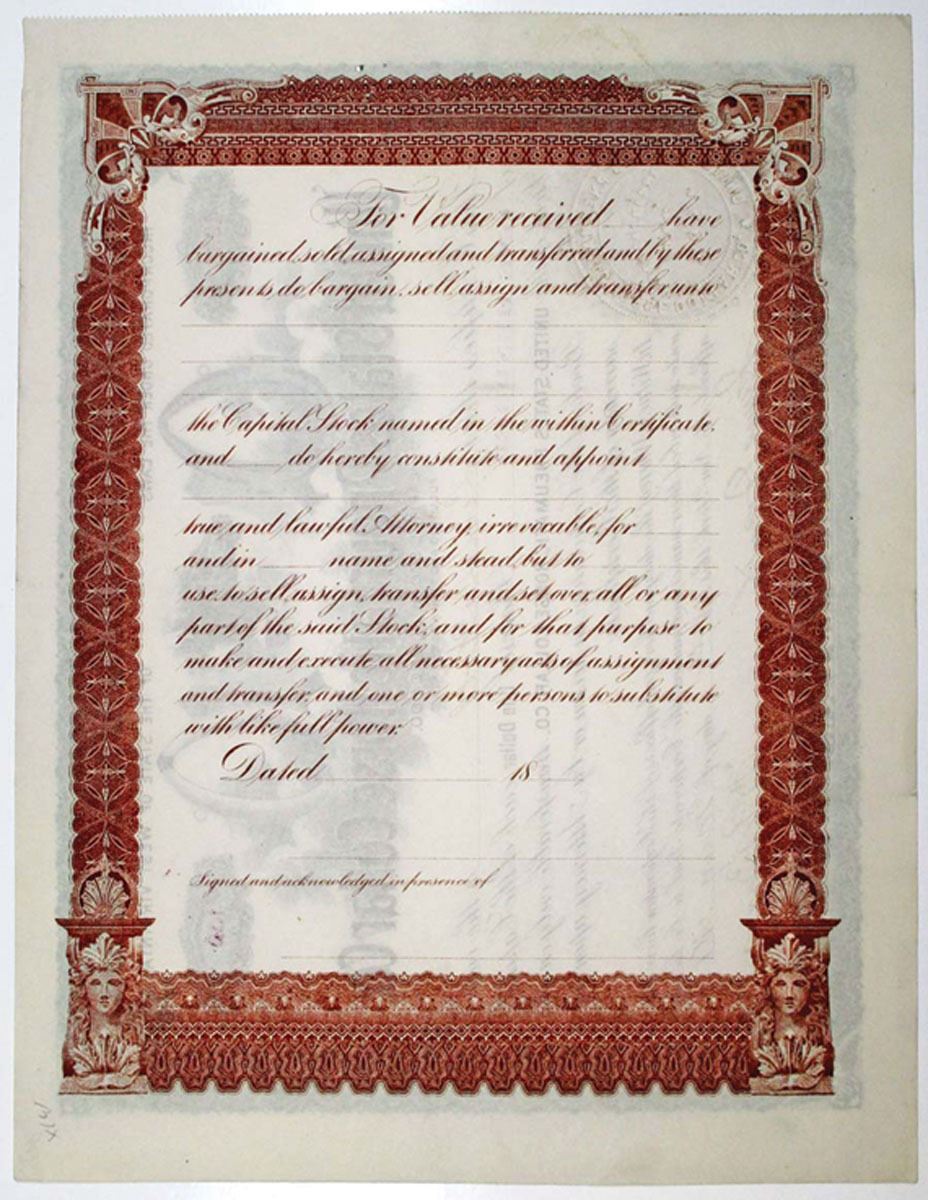 For Value received have
bargained, sold, assigned and transferred and by these
presents do bargain, sell, assign and transfer unto
the Capital Stock named in the within Certificate,
and do hereby constitute and appoint
true and lawful Attorney, irrevocable, for
and in name and stead, but to
use, to sell, assign, transfer and set over, all or any
part of the said Stock, and for that purpose to
make and execute all necessary acts of assignment
and transfer, and one or more persons to substitute
with like full power.
Dated 18
Signed and acknowledged in presence of